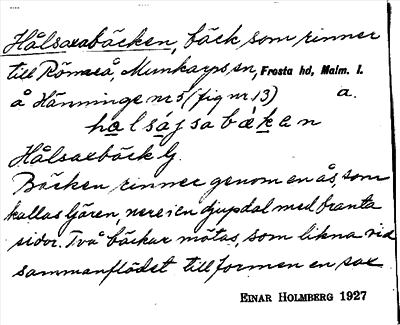 Hålsaxabäcken, bäck som rinner
till Rönneå, Munkarps sn, Frosta hd, Malm. l.
å Hänninge nr 5 (fig nr 13) a.
halsajsabækan
Hålsaxbäck lj.
Bäcken rinner genom en ås, som
kallas ljåren, nere i en djup dal med branta
sidor. Två bäckar mötas, som likna vid
sammanflödet till formen en sax
EINAR HOLMBERG 1927